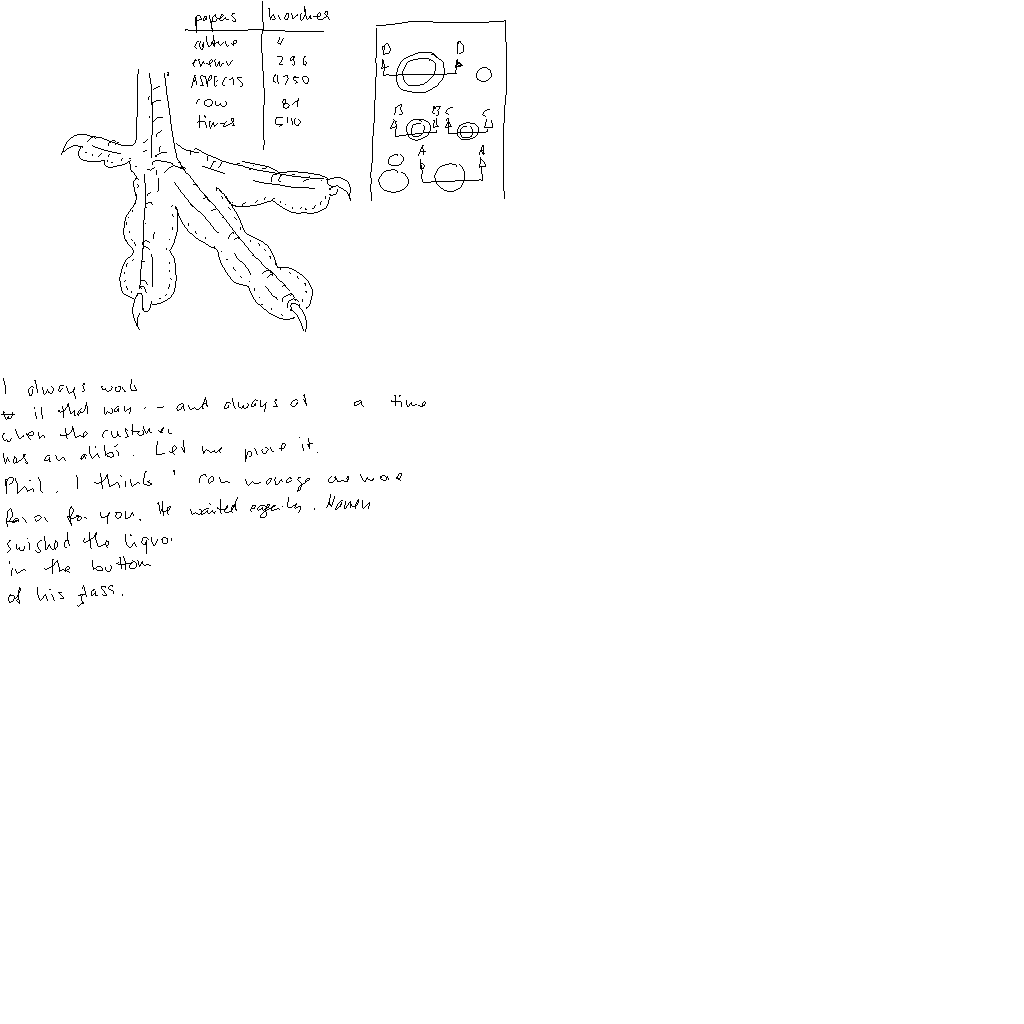 papers branches
culture "
enemy 296
ASPECTS 9750
row 81
times 540
D D
B B C C
A A
I always work
it that way -- and always at a time
when the customer
has an alibi. Let me prove it.
Phil. I think I can manage one more
favor for you. He waited eagerly. Hansen
swished the liquor
in the bottom
of his glass.